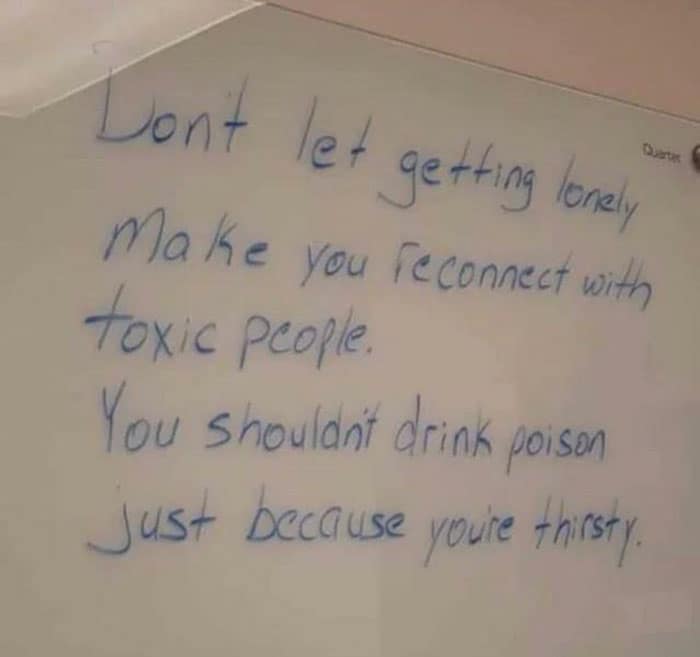 Don't let getting lonely
Make you reconnect with
toxic people.
You shouldn't drink poison
just because you're thirsty.
Quartet